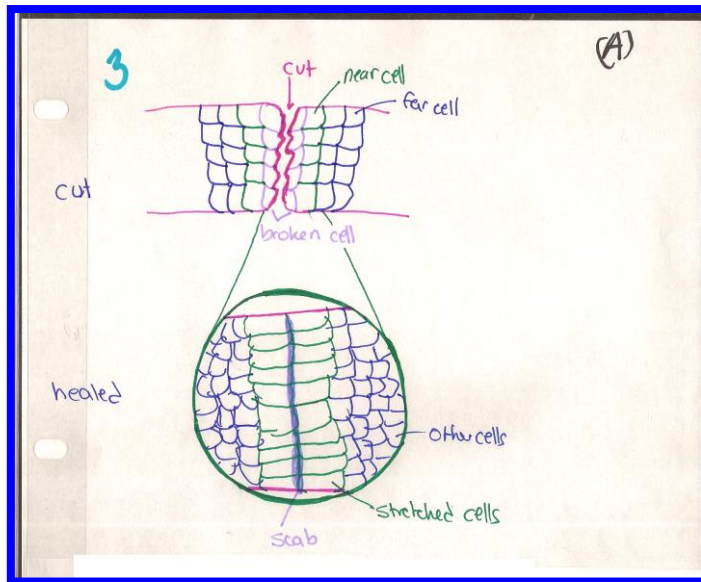 3
(A)
cut
near cell
far cell
cut
broken cell
healed
other cells
stretched cells
scab